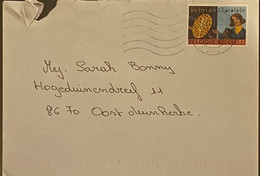 Belgian Chocolate
BELGIQUE BELGIË
Mej. Sarah Bonny
Hogeduinendreef 11
8670 Oostduinkerke